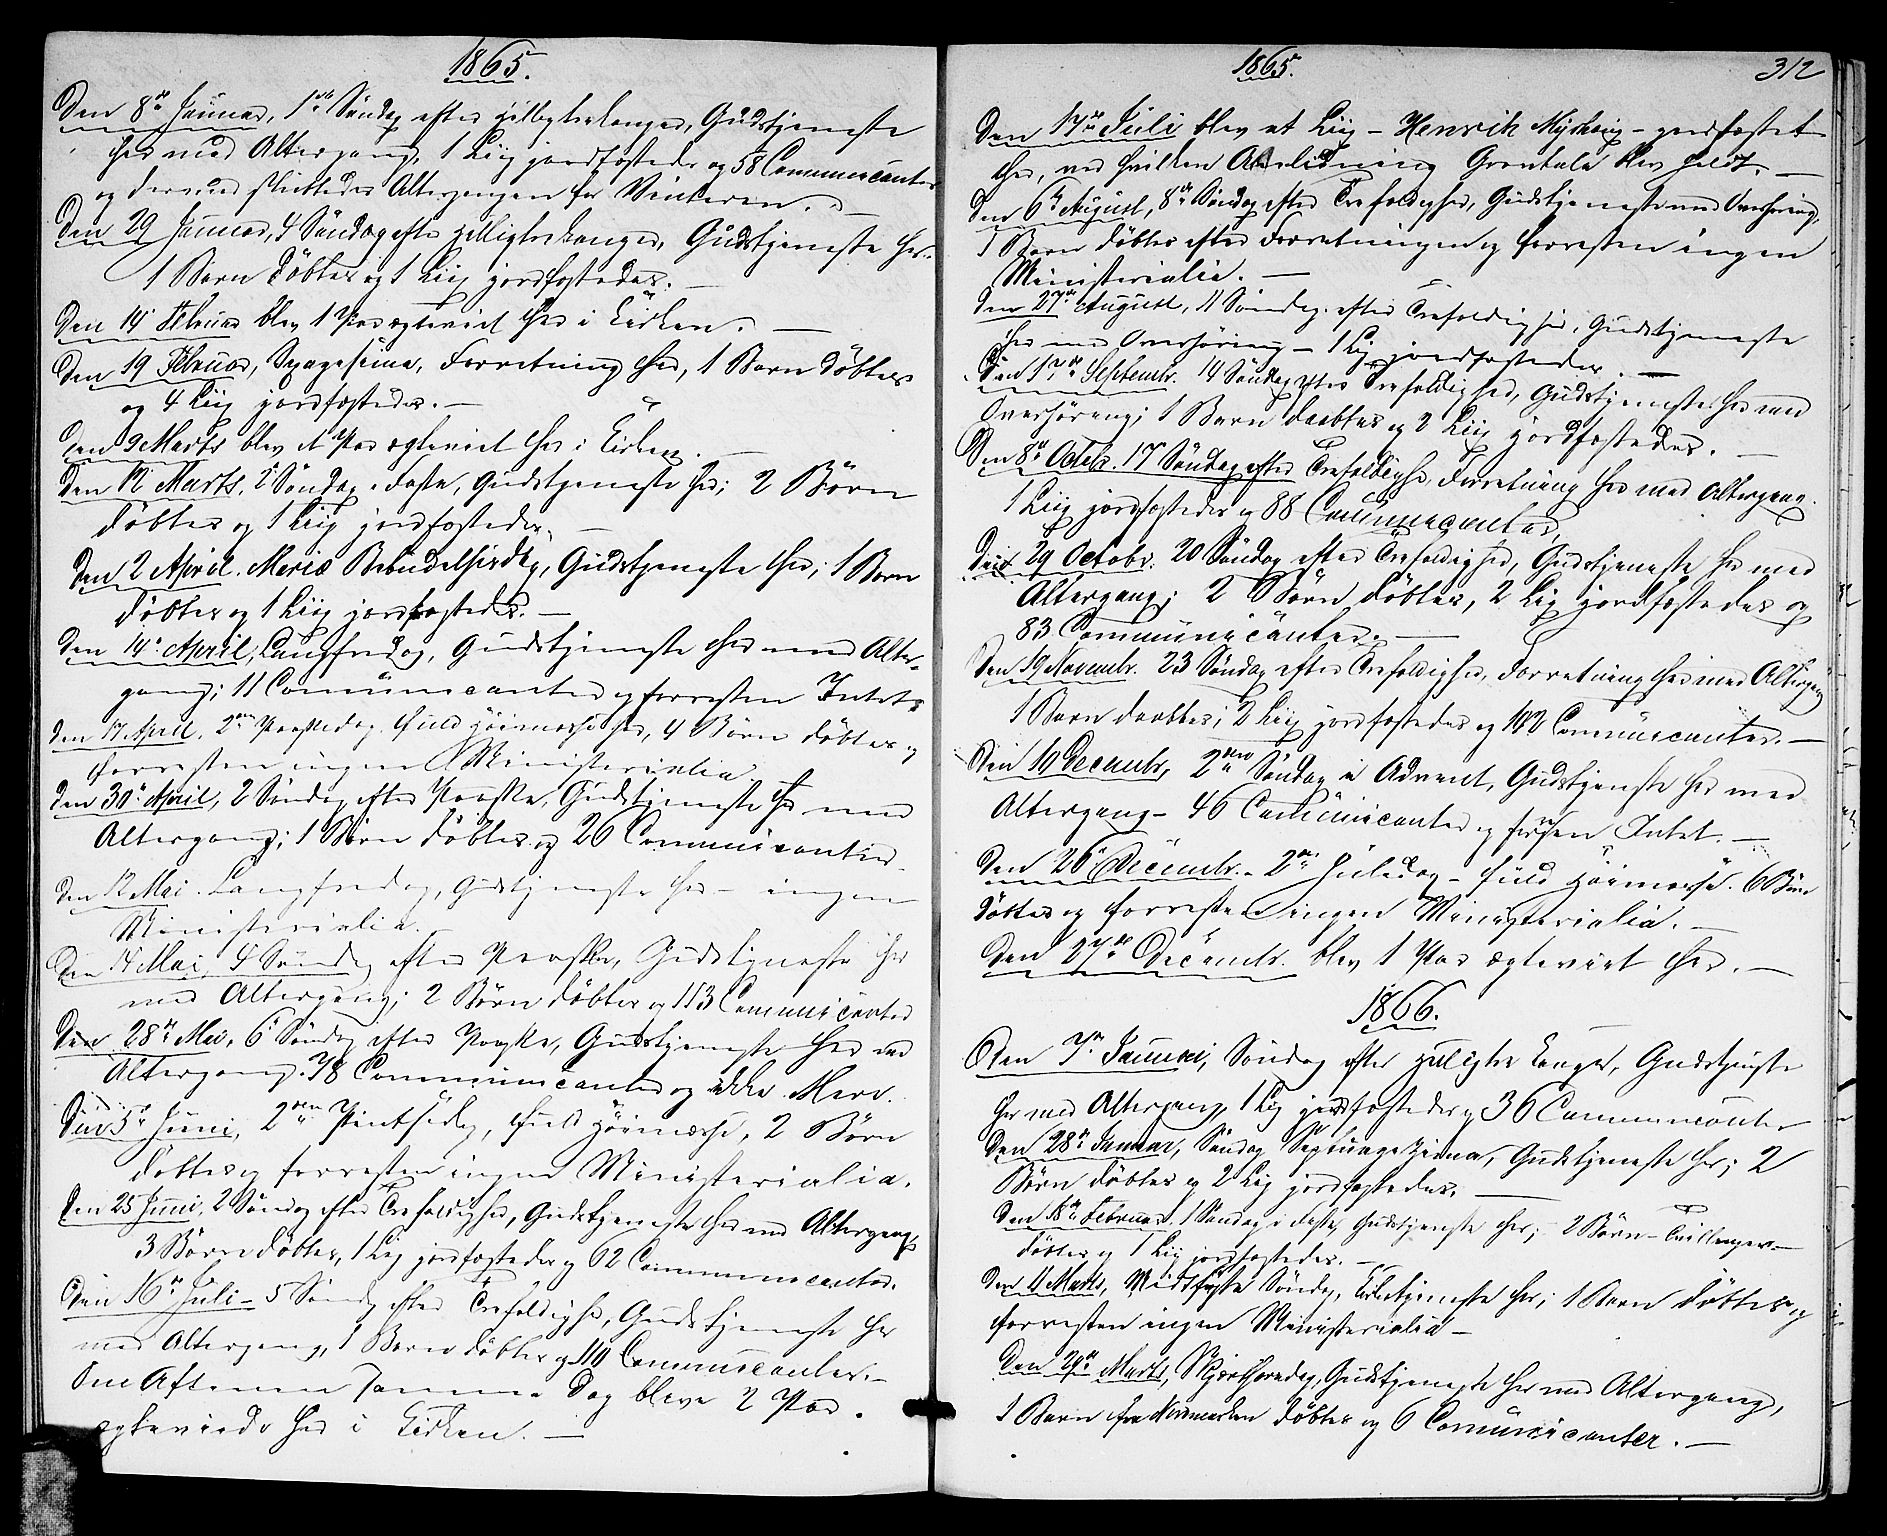 1865.
Den 8de Januar, 1ste Søndag efter Helligtrekonger, Gudstjeneste
her med Altergang, 1 Liig jordfæstedes og 58 Communicanter
og dermed sluttedes Altergangen for Vinteren. —
Den 29 Januar, 4 Søndag efter Helligtrekonger, Gudstjeneste her.
1 Barn døbtes og 1 Liig jordfæstedes. —
Den 14 Februar blev 1 Par ægteviet her i Kirken. —
Den 19 Februar, Sexagesima, Forretning her, 1 Barn døbtes
og 4 Liig jordfæstedes. —
Den 9 Marts blev et Par ægteviet her i Kirken. —
Den 12 Marts, 2 Søndag i Faste, Gudstjeneste her; 2 Børn
døbtes og 1 Liig jordfæstedes. —
Den 2 April, Mariæ Bebudelsesdag, Gudstjeneste her; 1 Barn
døbtes og 1 Liig jordfæstedes. —
Den 14de April, Langfredag, Gudstjeneste her med Alter-
gang; 11 Communicanter og forresten Intet.
Den 17 April, 2den Paaskedag, fuld Høimesse her, 4 Børn døbtes og
forresten ingen Ministerialia
Den 30te April, 2 Søndag efter Paaske, Gudstjeneste her med
Altergang; 1 Barn døbtes og 26 Communicanter
Den 12 Mai. Langfredag, Gudstjeneste her — ingen
Ministerialia. —
Den 14 Mai, 4 Søndag efter Paaske, Gudstjeneste her
med Altergang; 2 Børn døbtes og 113 Communicanter
Den 28de Mai, 6 Søndag efter Paaske, Gudstjeneste her med
Altergang. 78 Communicanter og ikke Mere.
Den 5te Juni, 2den Pintsedag, fuld Høimesse, 2 Børn
døbtes og forresten ingen Ministerialia.
Den 25 Juni, 2 Søndag efter Trefoldighed, Gudstjeneste her med Altergang,
3 Børn døbtes, 1 Liig jordfæstedes og 62 Communicanter.
Den 16de Juli — 5 Søndag efter Trefoldighed, Gudstjeneste her
med Altergang, 1 Barn døbtes og 110 Communicanter. —
Om Aftenen samme Dag bleve 2 Par
ægteviede her i Kirken. —
1865.
312
Den 17de Juli blev et Liig — Henrik — jordfæstet
her, ved hvilken Anledning Gravtale blev holdt. —
Den 6te August, 8de Søndag efter Trefoldighed, Gudstjeneste med Overhøring,
1 Barn døbtes efter Forretningen og forresten ingen
Ministerialia. —
Den 27de August, 11 Søndag efter Trefoldighed, Gudstjeneste
her med Overhøring — 1 Liig jordfæstedes. —
Den 17de Septembr. 14 Søndag efter Trefoldighed, Gudstjeneste her med
Overhøring; 1 Barn daabtes og 2 Liig jordfæstedes. —
Den 8de Octobr. 17 Søndag efter Trefoldighed, Forretning her med Altergang.
1 Liig jordfæstedes og 88 Communicanter,
Den 29 Octobr. 20 Søndag efter Trefoldighed, Gudstjeneste her med
Altergang; 2 Børn døbtes, 2 Liig jordfæstedes og
83 Communicanter. —
Den 19 Novembr. 23 Søndag efter Trefoldighed, Forretning her med Altergang
1 Barn daabtes; 2 Liig jordfæstedes og Communicanter. —
Den 10 Decembr, 2den Søndag i Advent, Gudstjeneste her med
Altergang — 46 Communicanter og forresten Intet. —
Den 26 Decembr. — 2den Juledag — fuld Høimesse. 6 Børn
døbtes og forresten ingen Ministerialia. —
Den 27de Decembr. blev 1 Par ægteviet her. —
1866.
Den 7de Januar, Søndag efter Helligtrekonger, Gudstjeneste
her med Altergang, 1 Liig jordfæstedes og 36 Communicanter
Den 28de Januar, Søndag Septuagesima, Gudstjeneste her; 2
Børn døbtes og 2 Liig jordfæstedes. —
Den 18de Februar. 1 Søndag i Faste, Gudstjeneste her; 2 Børn — Tvillinger —
døbtes og 1 Liig jordfæstedes. —
Den 11 Marts, Midfaste Søndag, Gudstjeneste her; 1 Barn døbtes og
forresten ingen Ministerialia —
Den 29de Marts, Skjærthorsdag, Gudstjeneste her med Altergang,
1 Barn fra døbtes og 6 Communicanter. —